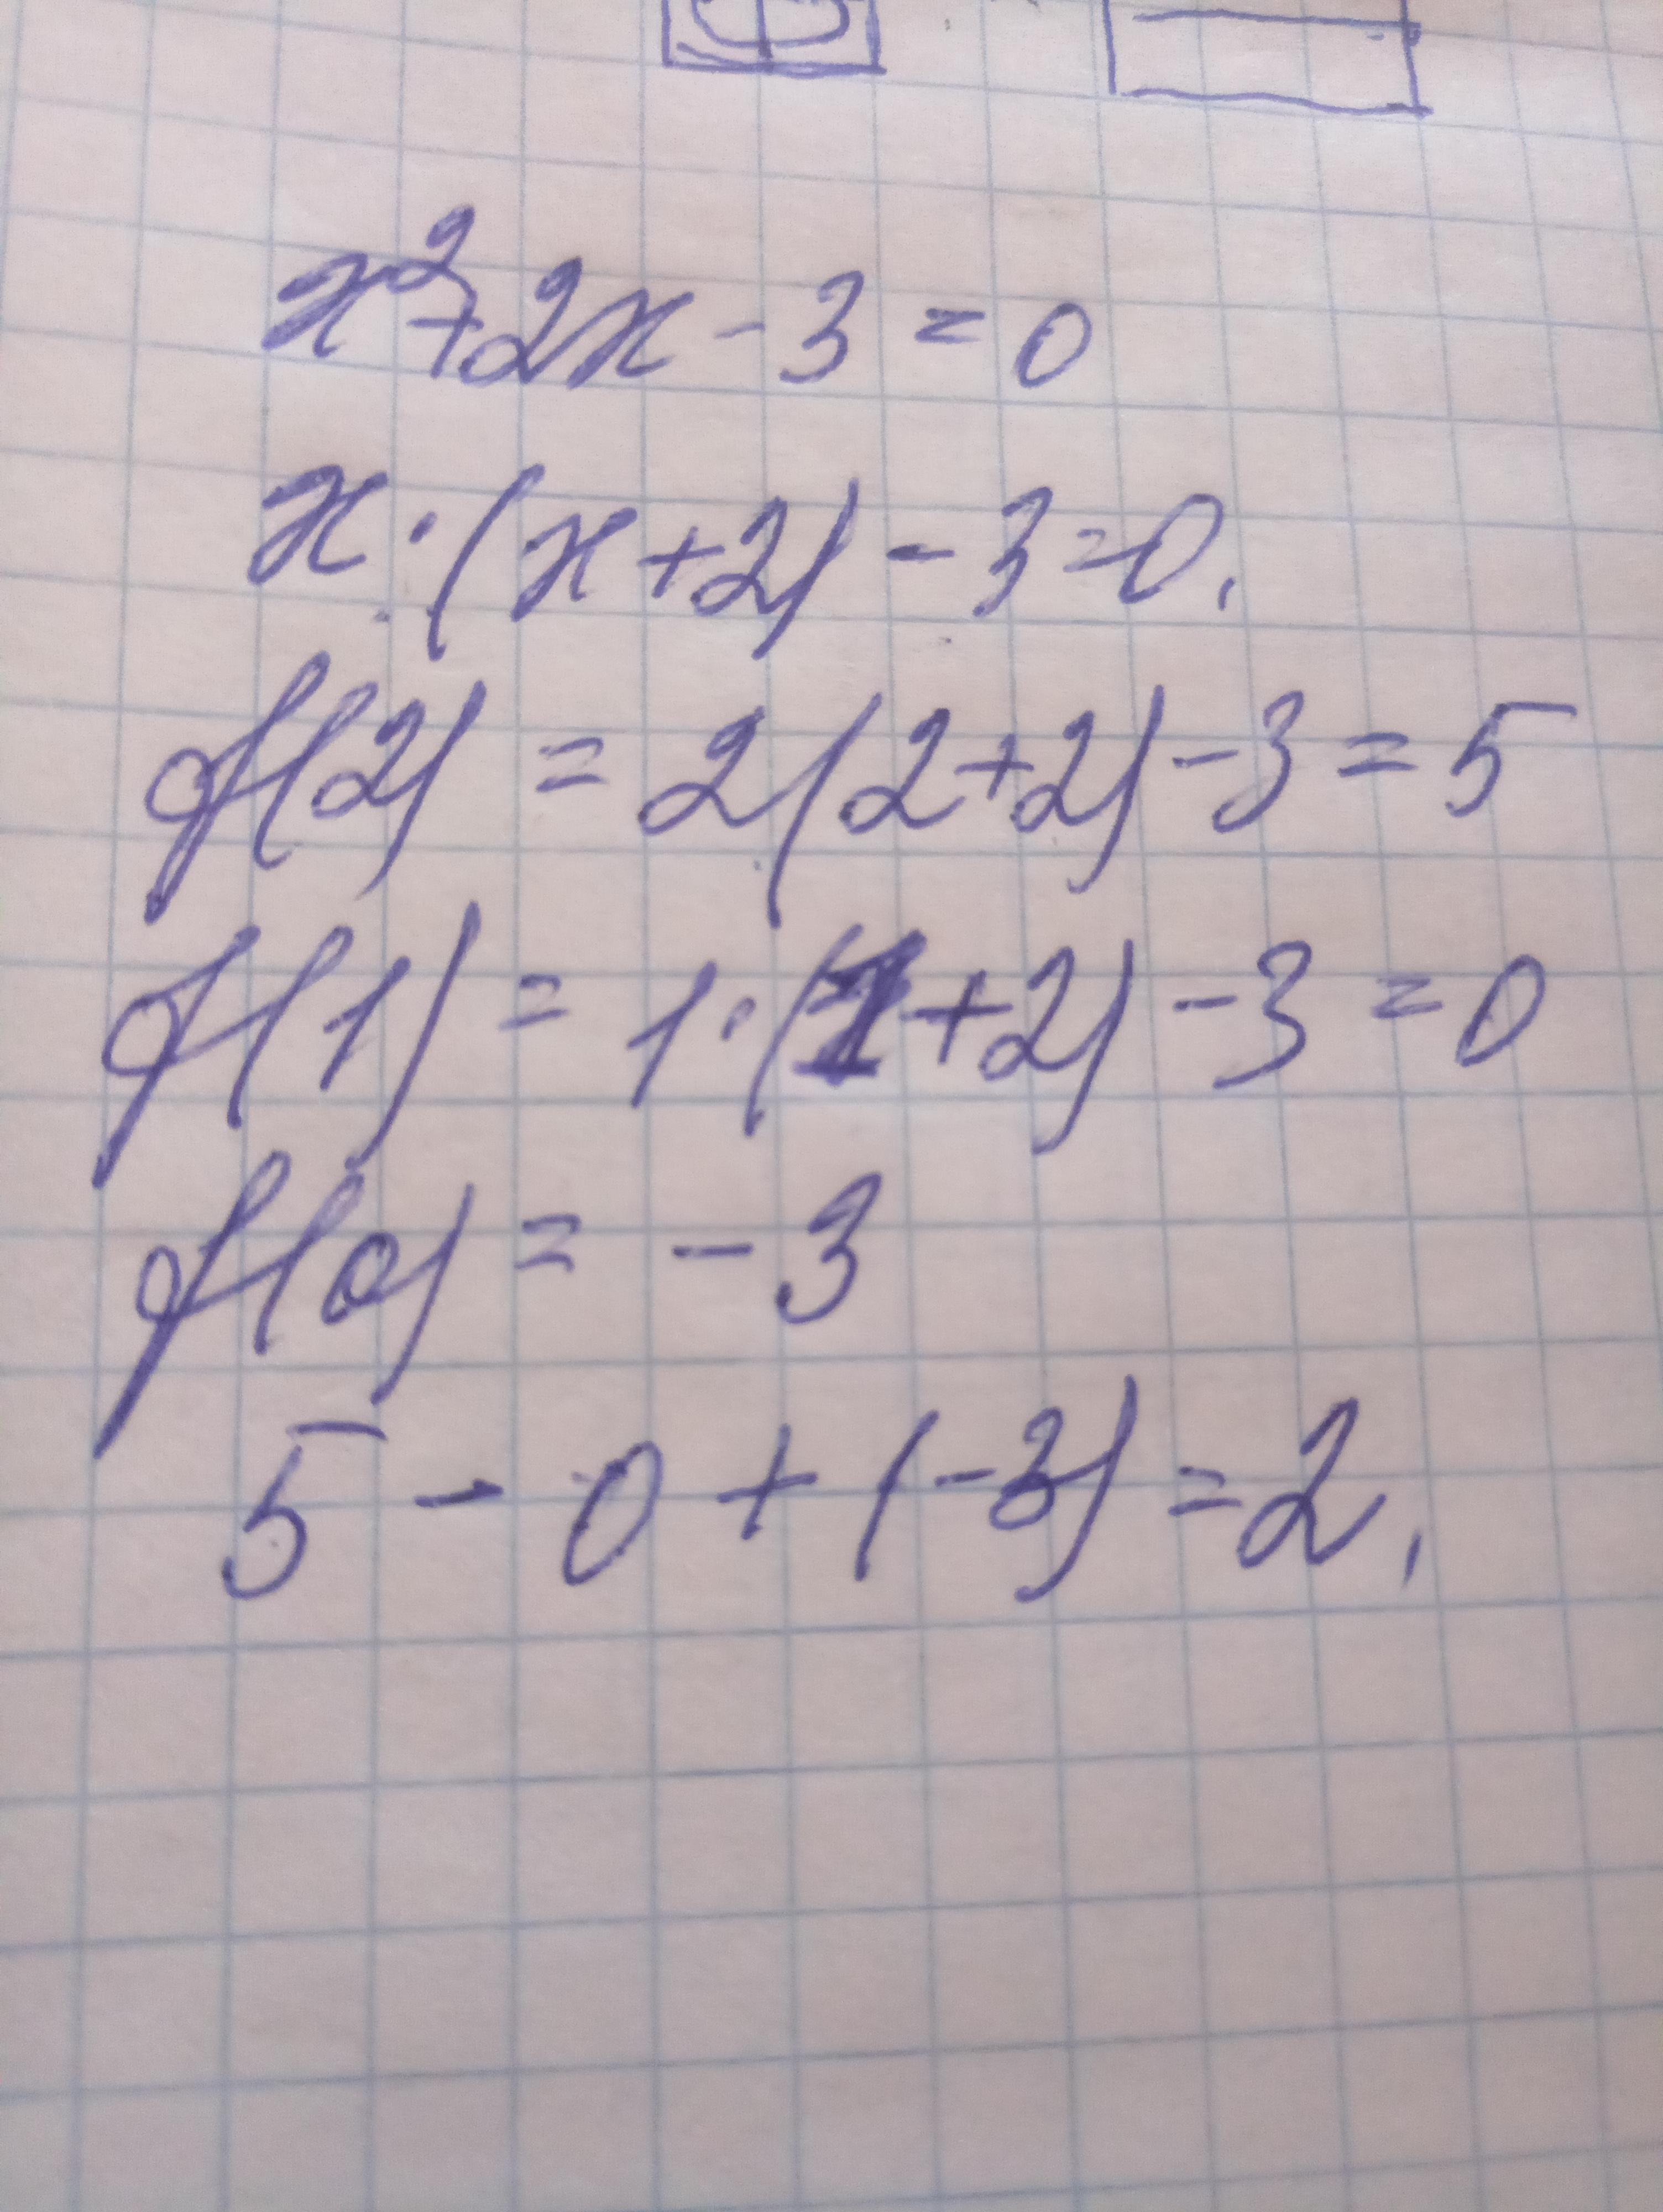 x²+2x-3=0
x·(x+2)-3=0.
f(2)=2(2+2)-3=5
f(1)=1·(1+2)-3=0
f(0)=-3
5-0+(-3)=2.